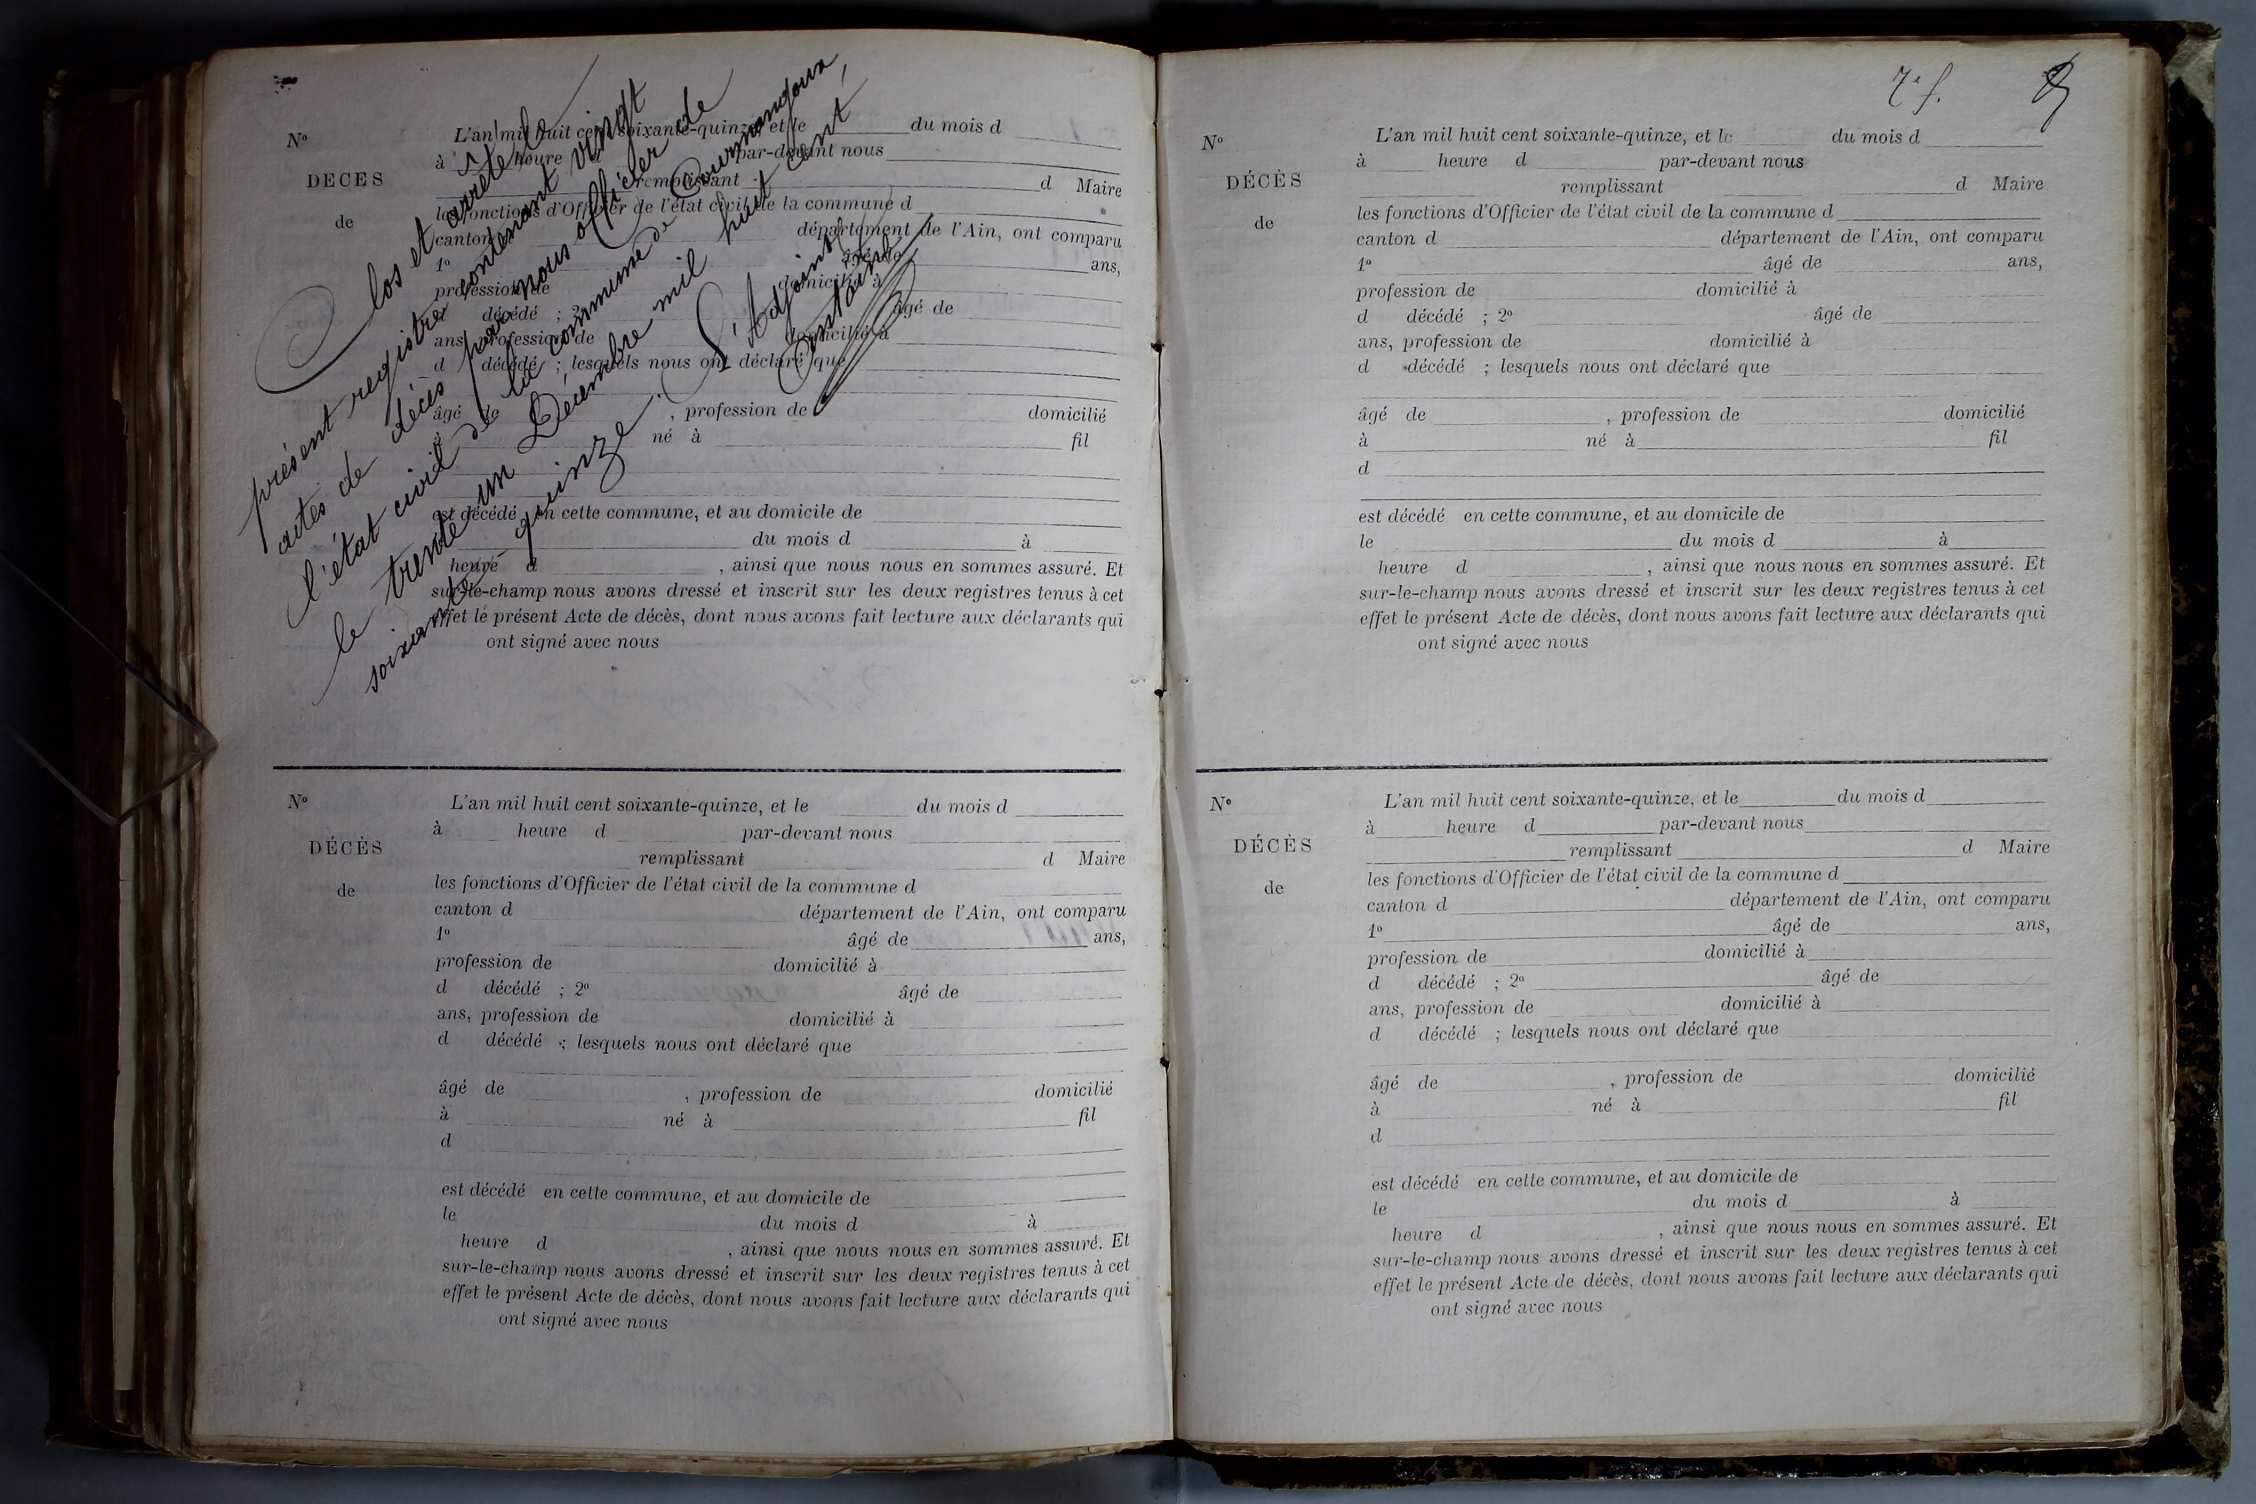 Clos et arrêté le
présent registre contenant vingt
actes de décès par nous officier de
l'état civil de la commune de Courmangoux,
le trente un Décembre mil huit cent
soixante-quinze.
L'Adjoint,
N°
DECES
de
L'an mil huit cent soixante-quinze, et le du mois d
à heure d par-devant nous
remplissant d Maire
les fonctions d'Officier de l'état civil de la commune d
canton d département de l'Ain, ont comparu
1° âgé de ans,
profession de domicilié à
d décédé ; 2° âgé de
ans, profession de domicilié à
d décédé ; lesquels nous ont déclaré que
âgé de , profession de domicilié
à né à fil
est décédé en cette commune, et au domicile de
du mois d à
heure d , ainsi que nous nous en sommes assuré. Et
sur-le-champ nous avons dressé et inscrit sur les deux registres tenus à cet
effet le présent Acte de décès, dont nous avons fait lecture aux déclarants qui
ont signé avec nous
N°
DÉCÈS
de
L'an mil huit cent soixante-quinze, et le du mois d
à heure d par-devant nous
remplissant d Maire
les fonctions d'Officier de l'état civil de la commune d
canton d département de l'Ain, ont comparu
1° âgé de ans,
profession de domicilié à
d décédé ; 2° âgé de
ans, profession de domicilié à
d décédé ; lesquels nous ont déclaré que
âgé de , profession de domicilié
à né à fil
d
est décédé en cette commune, et au domicile de
le du mois d à
heure d , ainsi que nous nous en sommes assuré. Et
sur-le-champ nous avons dressé et inscrit sur les deux registres tenus à cet
effet le présent Acte de décès, dont nous avons fait lecture aux déclarants qui
ont signé avec nous
7e f.
N°
DÉCÈS
de
L'an mil huit cent soixante-quinze, et le du mois d
à heure d par-devant nous
remplissant d Maire
les fonctions d'Officier de l'état civil de la commune d
canton d département de l'Ain, ont comparu
1° âgé de ans,
profession de domicilié à
d décédé ; 2° âgé de
ans, profession de domicilié à
d décédé ; lesquels nous ont déclaré que
âgé de , profession de domicilié
à né à fil
d
est décédé en cette commune, et au domicile de
le du mois d à
heure d , ainsi que nous nous en sommes assuré. Et
sur-le-champ nous avons dressé et inscrit sur les deux registres tenus à cet
effet le présent Acte de décès, dont nous avons fait lecture aux déclarants qui
ont signé avec nous
N°
DÉCÈS
de
L'an mil huit cent soixante-quinze, et le du mois d
à heure d par-devant nous
remplissant d Maire
les fonctions d'Officier de l'état civil de la commune d
canton d département de l'Ain, ont comparu
1° âgé de ans,
profession de domicilié à
d décédé ; 2° âgé de
ans, profession de domicilié à
d décédé ; lesquels nous ont déclaré que
âgé de , profession de domicilié
à né à fil
d
est décédé en cette commune, et au domicile de
le du mois d à
heure d , ainsi que nous nous en sommes assuré. Et
sur-le-champ nous avons dressé et inscrit sur les deux registres tenus à cet
effet le présent Acte de décès, dont nous avons fait lecture aux déclarants qui
ont signé avec nous